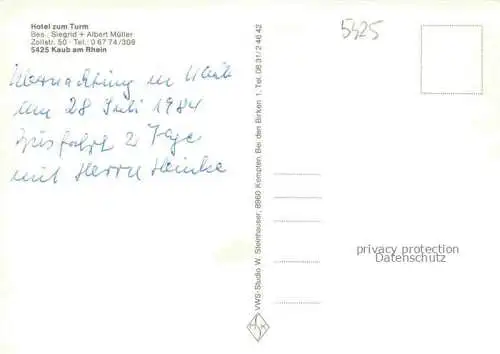 Hotel zum Turm
Bes.: Siegrid + Albert Müller
Zollstr. 50 · Tel.: 0 67 74/308
5425 Kaub am Rhein
Übernachtung in Kaub
am 28 Juli 1984
Ausfahrt 2 Tage
mit Herrn Heinke
5425
VWS-Studio W. Steinhauser, 8960 Kempten, Bei den Birken 1, Tel. 08 31/2 46 42
privacy protection
Datenschutz